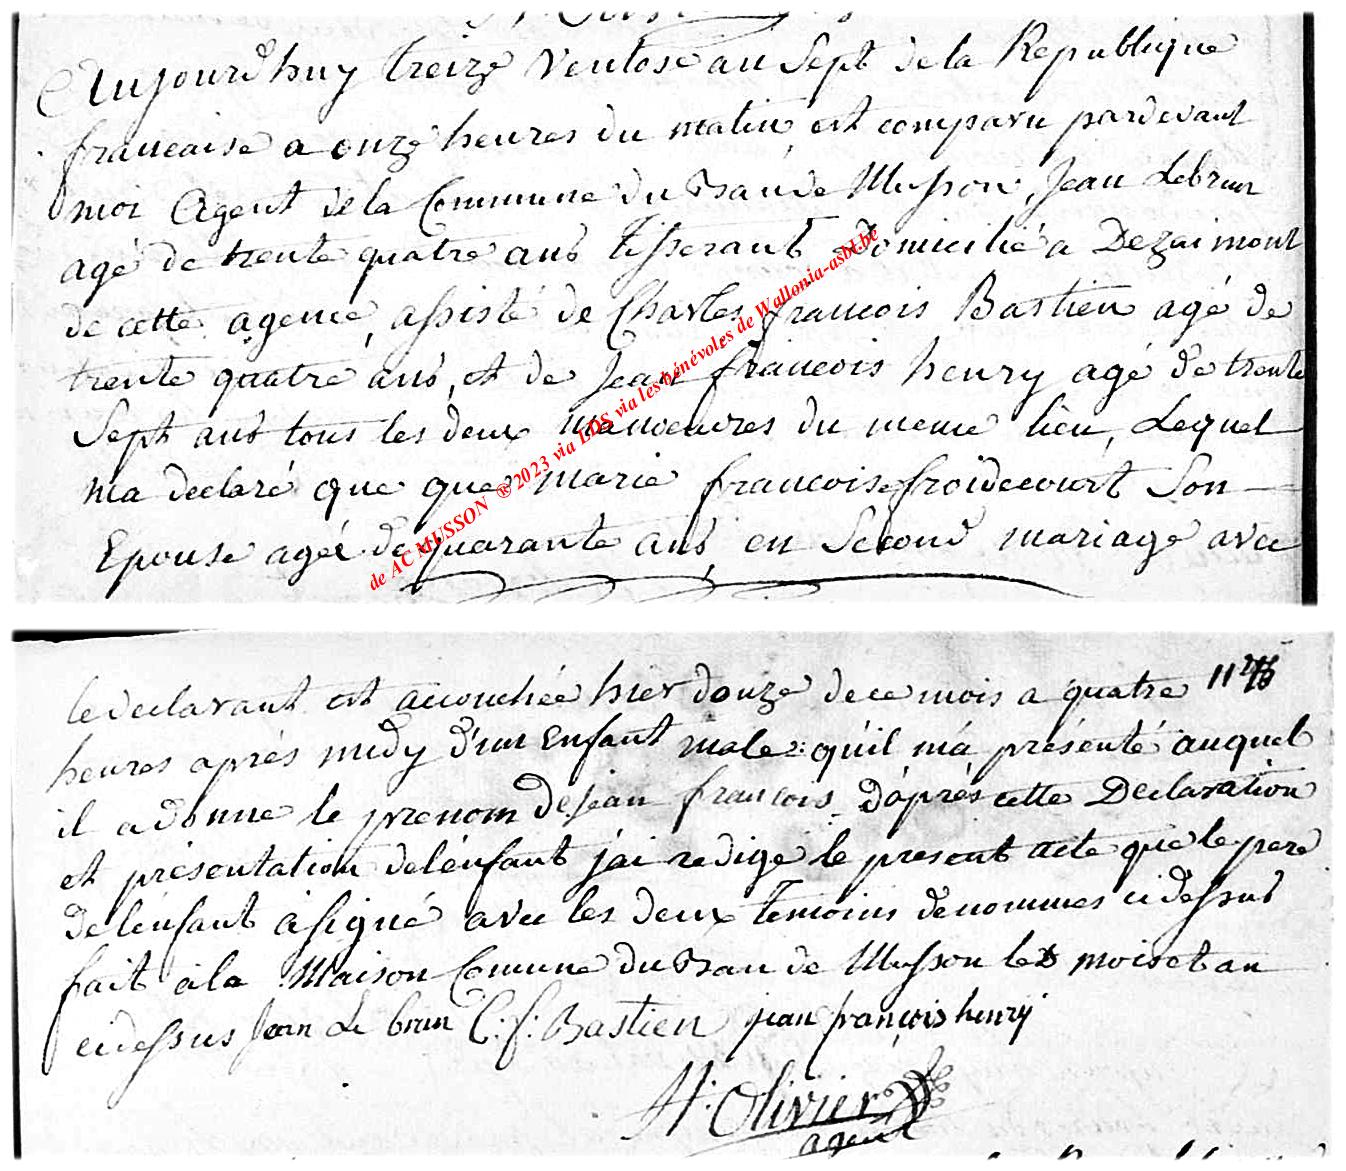 Aujourd'huy treize Ventose an Sept de la Republique
francaise a onze heures du matin est comparu pardevant
moi Agent de la Commune du Ban de Musson, Jean Lebrun
agé de trente quatre ans tisserant domicilié a Dezaimont
de cette agence, assisté de Charles francois Bastien agé de
trente quatre ans, et de Jean francois henry agé de trente
Sept ans tous les deux manoeuvres du meme lieu, Lequel
ma declaré que que marie francoise froidecourt Son
Epouse agée de quarante ans, en Second mariage avec
de AC MUSSON ® 2023 via LDS via les bénévoles de Wallonia-asbl.be
le declarant est accouchée hier douze de ce mois a quatre
heures aprés midy d'un Enfant male qu'il m'a présenté auquel
il a donne le prenom de jean francois, d'aprés cette Declaration
et présentation de lénfant j'ai redigé le present acte que le pere
de lénfant a signé avec les deux temoins denommes ci dessus
fait a la Maison Comune du Ban de Musson les moiset an
cidessus Jean Le brun C: f: Bastien jean françois henrÿ
H: Olivier
agent